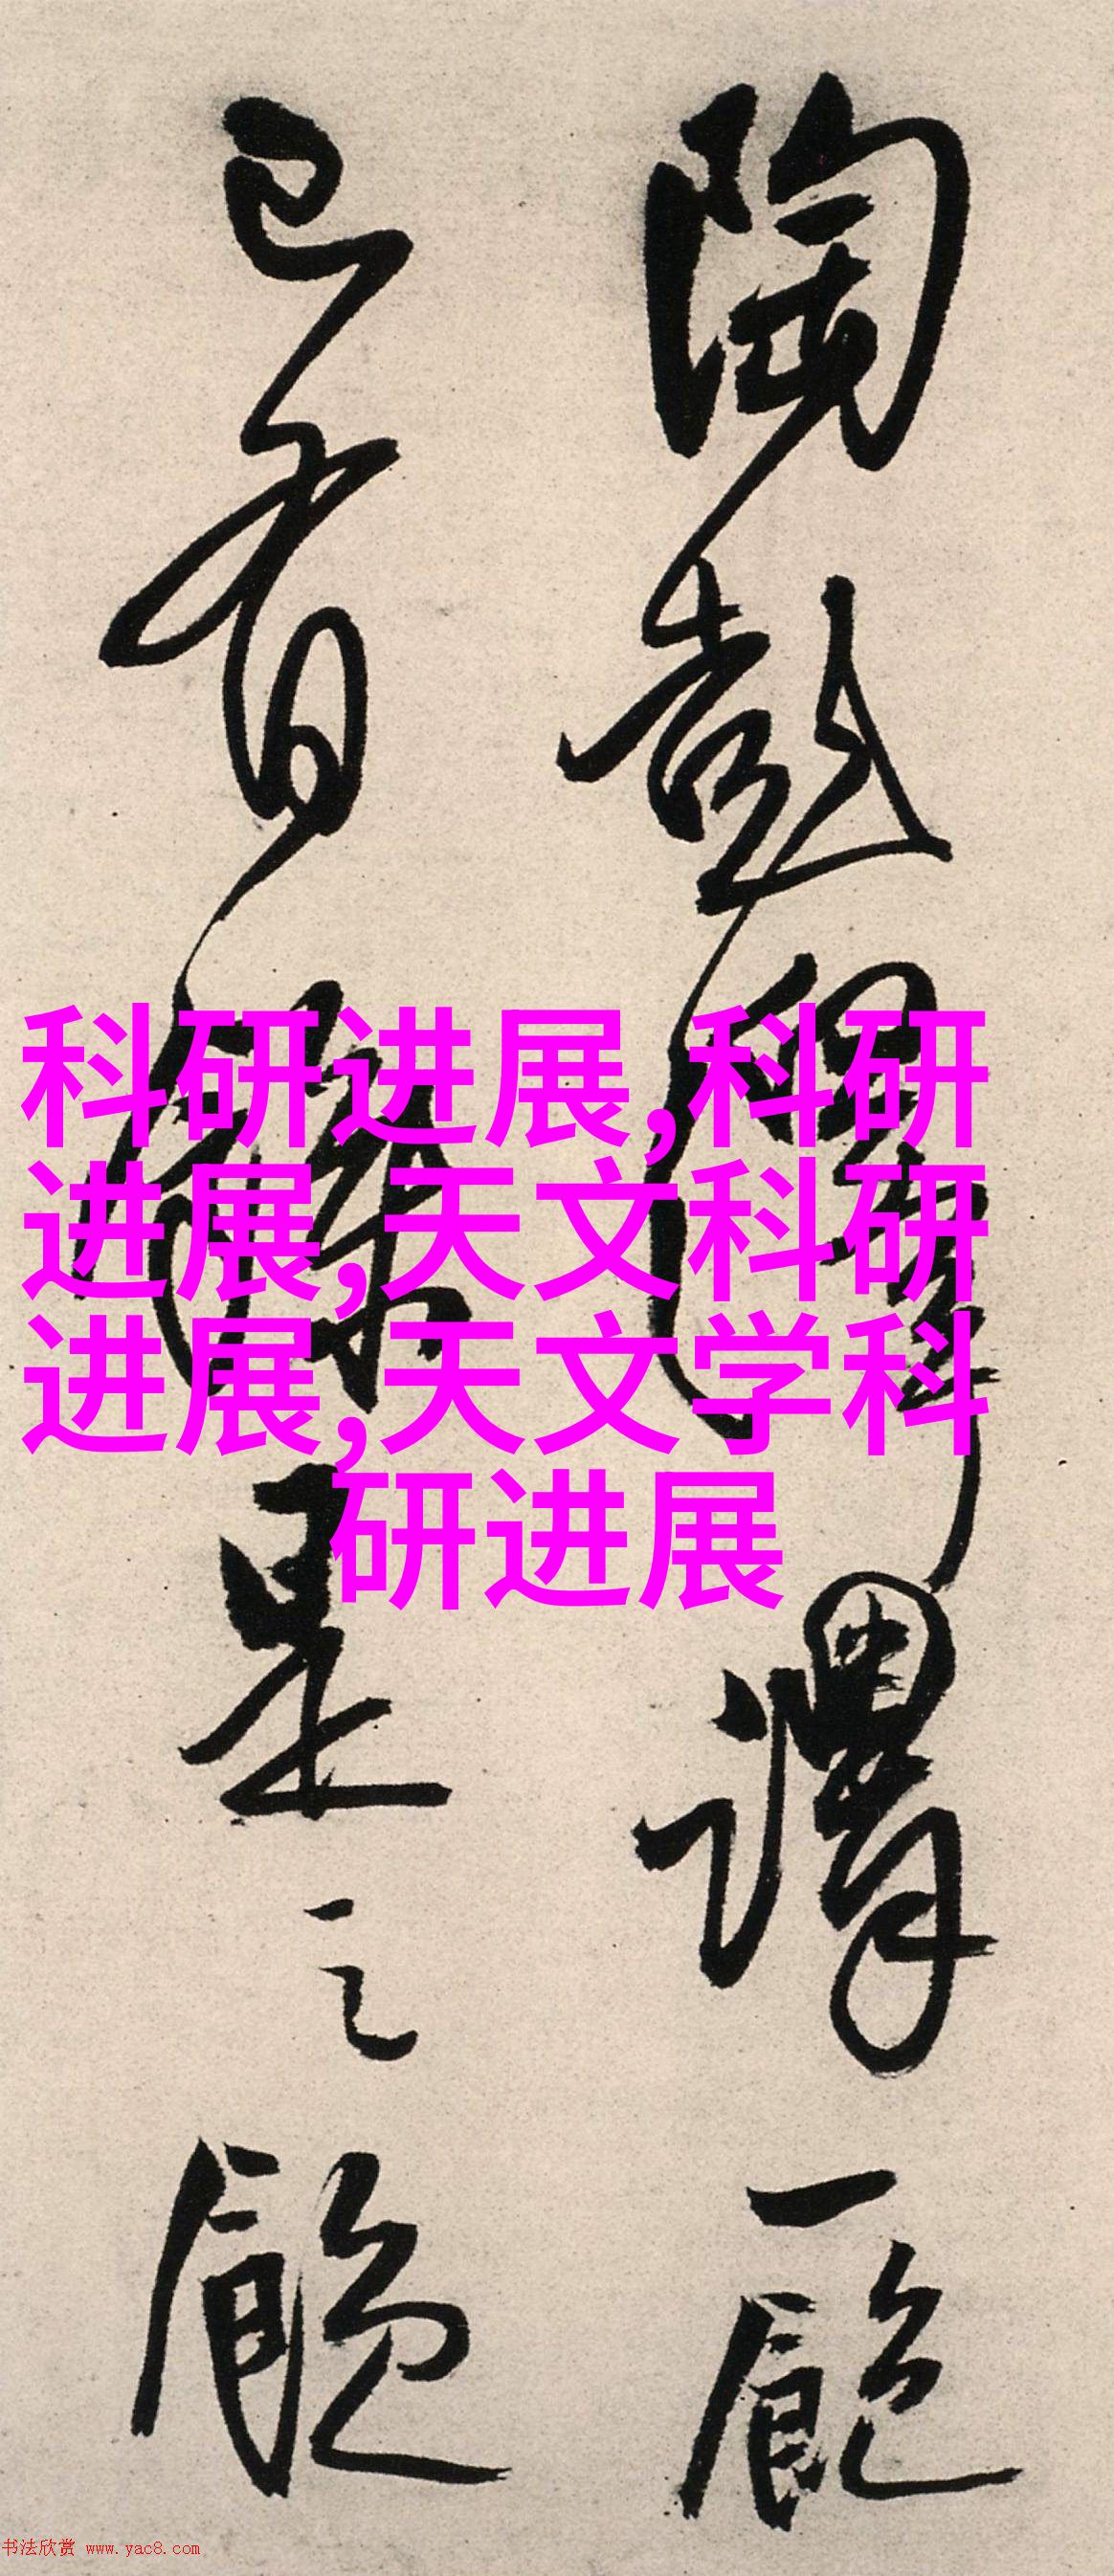 陶彭澤謂一飽
已有是之
科研进展,科研
进展,天文科研
进展,天文学科
研进展
书法欣赏 www.yac8.com